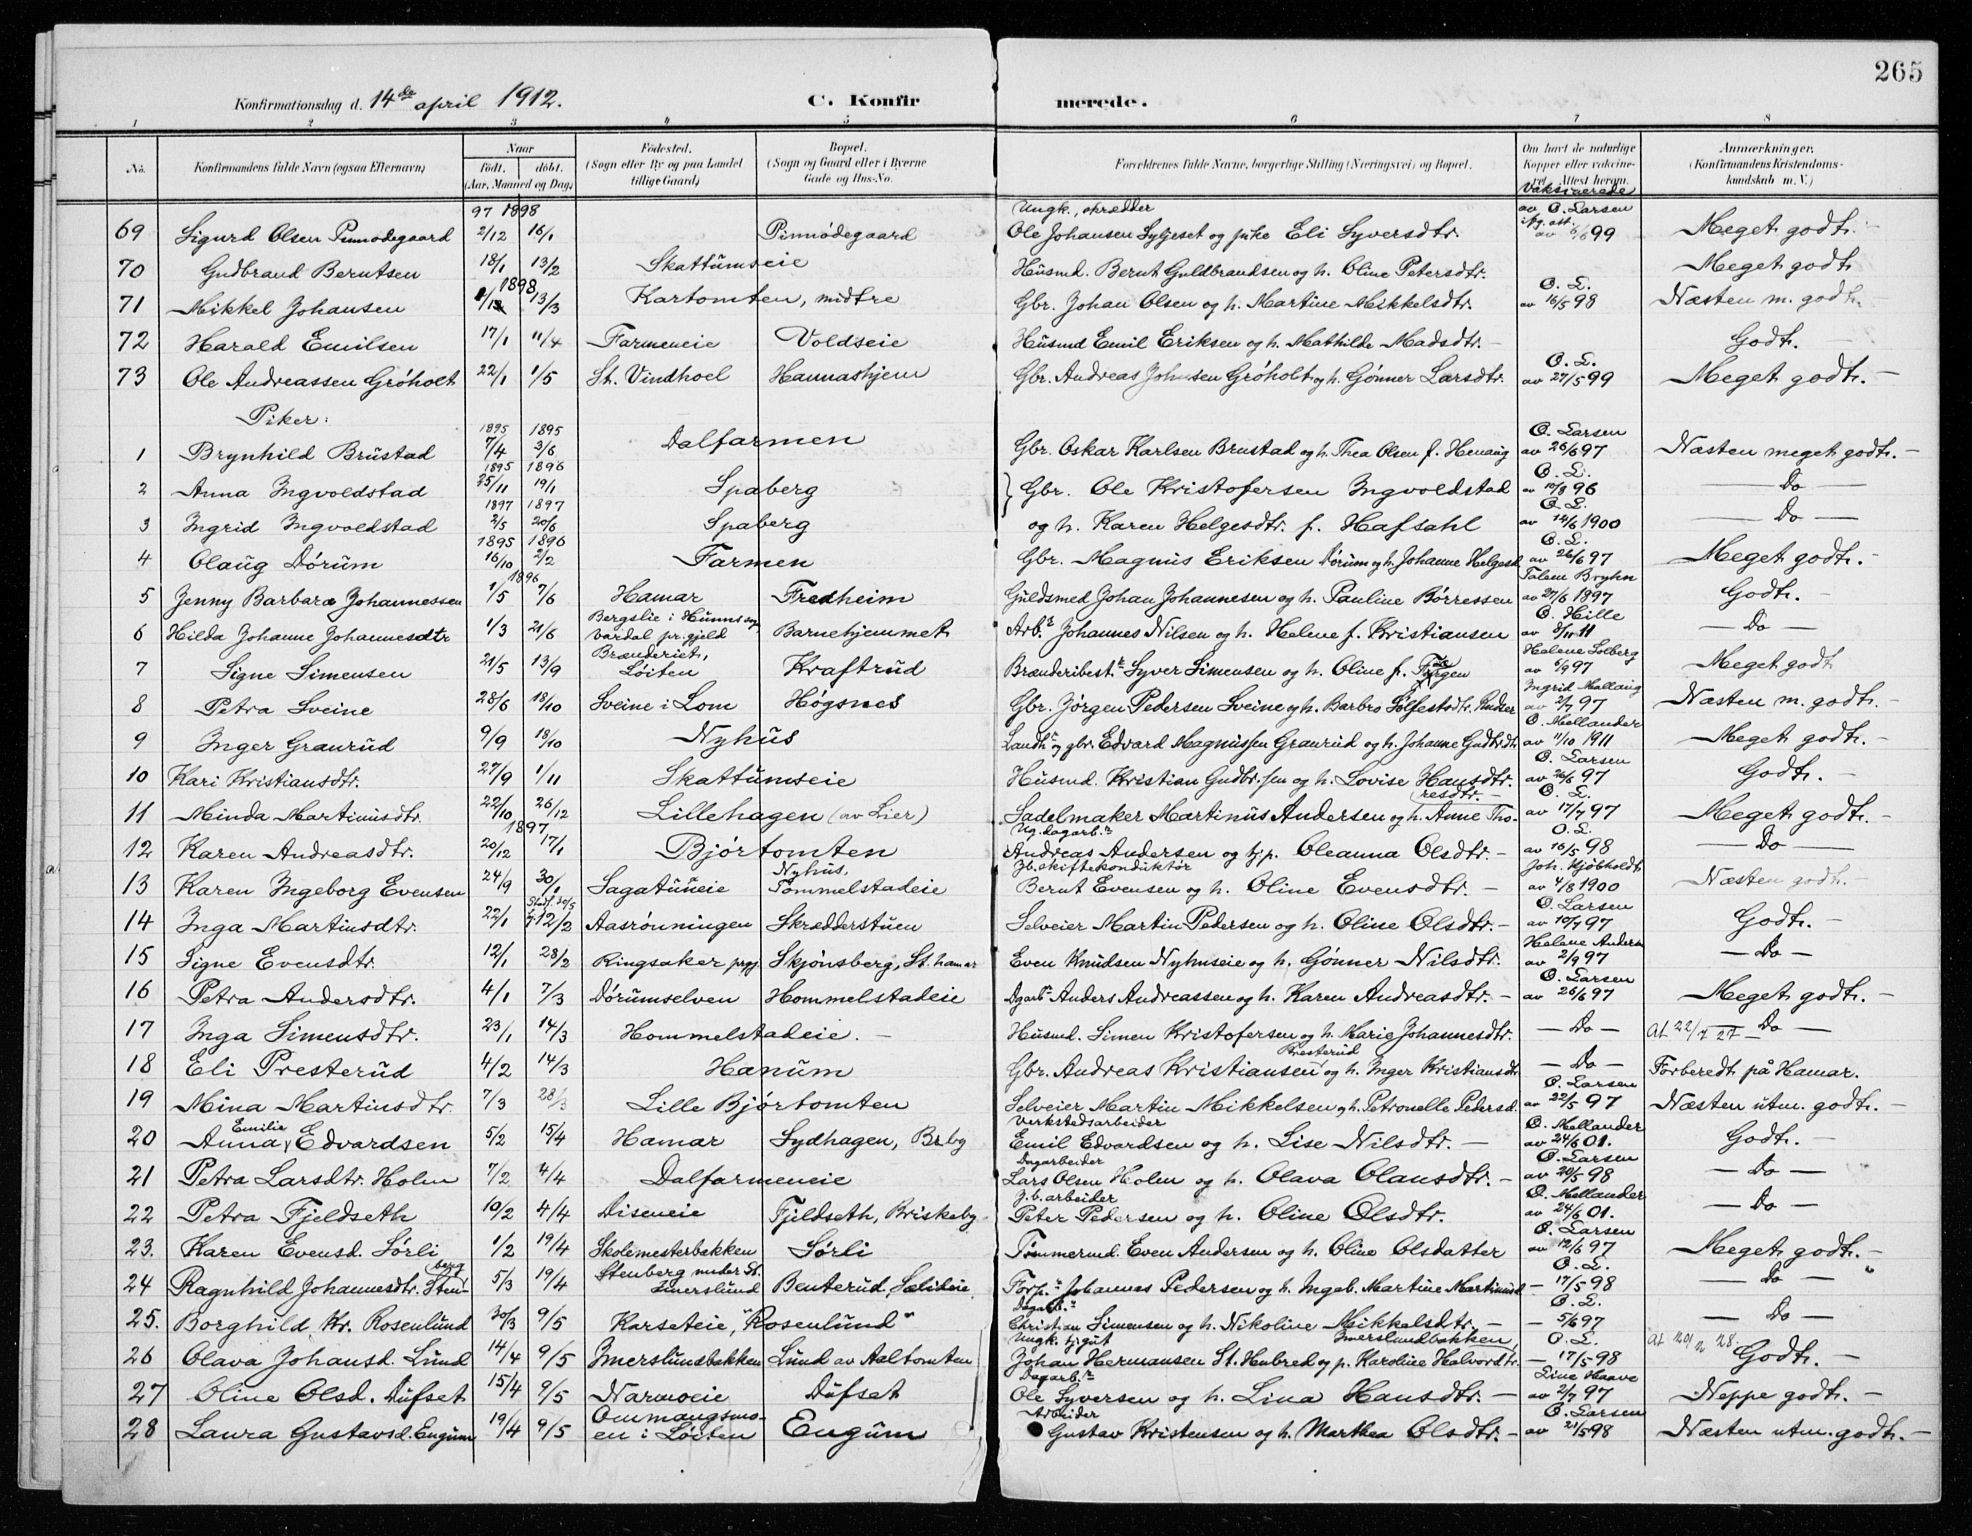 265
Konfirmationsdag d. 14de april 1912. C. Konfir merede.
1 2 3 4 5 6 7 8
No. Konfirmandens fulde Navn (ogsaa Efternavn) Naar født. døbt. (Aar, Maaned og Dag) Fødested. (Sogn eller By og paa Landet tillige Gaard) Bopæl. (Sogn og Gaard eller i Byerne Gade og Hus-No. Forældrenes fulde Navne, borgerlige Stilling (Næringsvei) og Bopæl. Om havt de naturlige Kopper eller vakcineret. Attest herom. Anmerkninger. (Konfirmandens Kristendomskundskab m. V.)
Vaksinerede
97 1898 Ungk., skrædder av O. Larsen
69 Sigurd Olsen Pinnødegaard 2/12 16/1 Pinnødegaard Ole Johansen Syljeset og pike Eli Syversdtr. av 6/6 99 Meget godt. -
70 Gudbrand Berntsen 18/1 13/2 Skattumseie Husmd. Bernt Guldbrandsen og h. Oline Petersdtr. Meget godt
1898 O. L.
71 Mikkel Johansen 13/3 Kartomten, midtre Gbr. Johan Olsen og h. Martine Mikkelsdtr. av 16/5 98 Næsten m. godt.
72 Harald Emilsen 17/1 11/4 Farmeneie Voldseie Husmd Emil Eriksen og h. Mathilde Madsdtr. - Godt. -
O. L.
73 Ole Andreassen Grøholt 22/1 1/5 St. Vindhoel Hannashjem Gbr. Andreas Johansen Grøholt og h. Gønner Larsdtr. av 27/5 99 Meget godt. -
Piker:
1895 1895 O. Larsen
1 Brynhild Brustad 7/4 3/6 Dalfarmen Gbr. Oskar Karlsen Brustad og h. Thea Olsen f. Henaug av 26/6 97 Næsten meget godt. -
1895 1896 O. L.
2 Anna Ingvoldstad 25/11 19/1 Spaberg } Gbr. Ole Kristofersen Ingvoldstad av 10/8 96 — Do —
1897 1897 O. L.
3 Ingrid Ingvoldstad 2/5 20/6 Spaberg og h. Karen Helgesdtr. f. Hafsahl av 12/6 1900 — Do —
1895 1896 O. L.
4 Olaug Dørum 16/10 2/2 Farmen Gbr. Magnus Eriksen Dørum og h. Johanne Helgesd. av 26/6 97 Meget godt. -
1896 Talem Bryhn
5 Jenny Barbara Johannessen 1/5 7/6 Hamar Fredheim Guldsmed Johan Johannesen og h. Pauline Børressen av 27/6 1897 Godt. -
Bergslie i Hunns sogn O. Hille
6 Hilda Johanne Johannesdtr 1/3 21/6 Vardal pr.gjeld Barnehjemmet Arb.r Johannes Nilsen og h. Helene f. Kristiansen av 8/11 11 — Do —
Brænderiet, Helene Solberg
7 Signe Simensen 21/5 13/9 Løiten Kraftrud Brænderibest.r Syver Simensen og h. Oline f. av 6/9 97 Meget godt
Ingrid Mellang
8 Petra Sveine 28/6 18/10 Sveine i Lom Høgsnes Gbr. Jørgen Pedersen Sveine og h. Barbro av 2/7 97 Næsten m. godt. -
O. Mellander
9 Inger Graurud 9/9 18/10 Nyhus Landh. og gbr. Edvard Magnussen Graurud og h. Johanne av 11/10 1911 Meget godt. -
O. Larsen
10 Kari Kristiansdtr. 27/9 1/11 Skattumseie Husmd. Kristian Gudbr.sen og h. Lovise Hansdtr. av 26/6 97 Godt. -
resdtr. - O. L.
11 Minda Martinusdtr. 22/10 26/12 Lillehagen (av Lier) Sadelmaker Martinus Andersen og h. Anne Tho- av 17/7 97 Meget godt. -
1897 Ug. dagarb.r O. L.
12 Karen Andreasdtr. 20/12 17/1 Bjørtomten Andreas Andersen og tj.p. Oleanna Olsdtr. - av 16/5 98 — Do —
Nyhus, Jb. skiftekonduktør Joh. Kjøbholdt
13 Karen Ingeborg Evensen 24/9 30/1 Sagatuneie Tommelstadeie Bernt Evensen og h. Oline Evensdtr. - av 4/8 1900 Næsten godt. -
O. Larsen
14 Inga Martinsdtr. 22/1 12/2 Aasrønningen Skrædderstuen Selveier Martin Pedersen og h. Oline Olsdtr. - av 10/7 97 Godt. -
Helene Anders
15 Signe Evensdtr. 12/1 28/2 Ringsaker prgj. Skjønsberg, St. hamar Even Knudsen Nyhuseie og h. Gønner Nilsdtr. av 2/9 97 — Do —
O. Larsen
16 Petra Andersdtr. 4/1 7/3 Dørumselven Hommelstadeie Dgarb.r Anders Andreassen og h. Karen Andreasdtr. - av 26/6 97 Meget godt. -
17 Inga Simensdtr. 23/1 14/3 Hommelstadeie. - Husmd. Simen Kristofersen og h. Marie Johannesdtr. — Do — At 22/7 27 — Do —
Presterud
18 Eli Presterud 4/2 14/3 Hanum Gbr. Andreas Kristiansen og h. Inger Kristiansdtr — Do — Forberedt på Hamar.
O. Larsen
19 Mina Martinsdtr. 7/3 28/3 Lille Bjørtomten Selveier Martin Mikkelsen og h. Petronelle Pedersd. av 22/5 97 Næsten utm. godt. -
Emilie Verkstedsarbeider O. Mellander
20 Anna Edvardsen 5/2 15/4 Hamar Sydhagen, Br.by Emil Edvardsen og h. Lise Nilsdtr. - av 24/6 01. Godt. -
Dagarbeider O. Larsen
21 Petra Larsdtr. Holen 7/2 4/4 Dalfarmeneie Lars Olsen Holen og h. Olava Olausdtr. - av 20/5 98 — Do —
J.b. arbeider O. Mellander
22 Petra Fjeldseth 10/2 4/4 Diseneie Fjeldseth, Briskeby Peter Pedersen og h. Oline Olsdtr. av 24/6 01. — Do —
O. Larsen
23. Karen Evensd. Sørli 1/2 19/4 Skolemesterbakken Sørli Tømmermd. Even Andersen og h. Oline Olsdatter av 12/6 97 Meget godt. -
berg Stenberg under St. O. L.
24 Ragnhild Johannesdtr. Sten- 5/3 19/4 Imerslund Benterud, Sælideie Forp.r Johannes Pedersen og h. Ingeb. Martine Martinusd — 17/5 98 — Do —
Dagarb.r O. L.
25. Borghild Kr. Rosenlund 30/3 9/5 Karseteie, "Rosenlund" Christian Simensen og h. Nikoline Mikkelsdtr. — — 5/6 97 — Do —
Ungk. tj.gut Imerslundbakken O. L. At 28.
26 Olava Johansd. Lund 14/4 9/5 Imerslundbakken Lund av Aaltomten Johan Hermansen St. Hubred og p. Karoline Halvordtr. — 17/5 98 Godt. -
Dagarb.r Line Haave
27 Oline Olsd. Dufset 15/4 9/5 Narmoeie Dufset Ole Syversen og h. Lina Hansdtr. — av 2/7 97 Neppe godt. -
Ommangsmo- Arbeider O. Larsen
28 Laura Gustavsd. Engum 19/4 9/5 en i Løiten Engum Gustav Kristensen og h. Marthea Olsdtr. - av 21/5 98 Næsten utm. godt. -